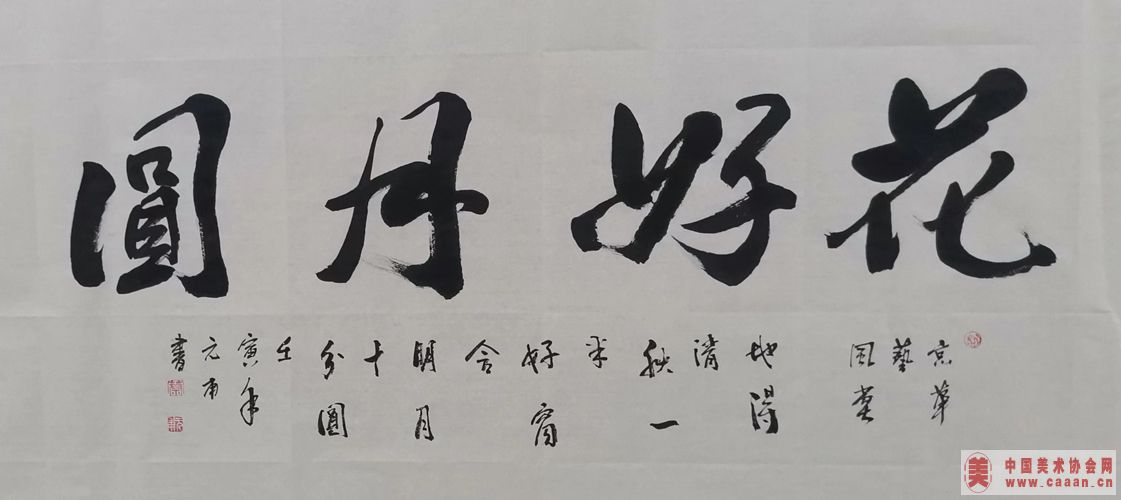 花好月圓
藝
風堂
地得
清
秋一
半
好窗
含
明月
十
分圓
壬
寅年
元甫
書
美
中国美术协会网
www.caaan.cn